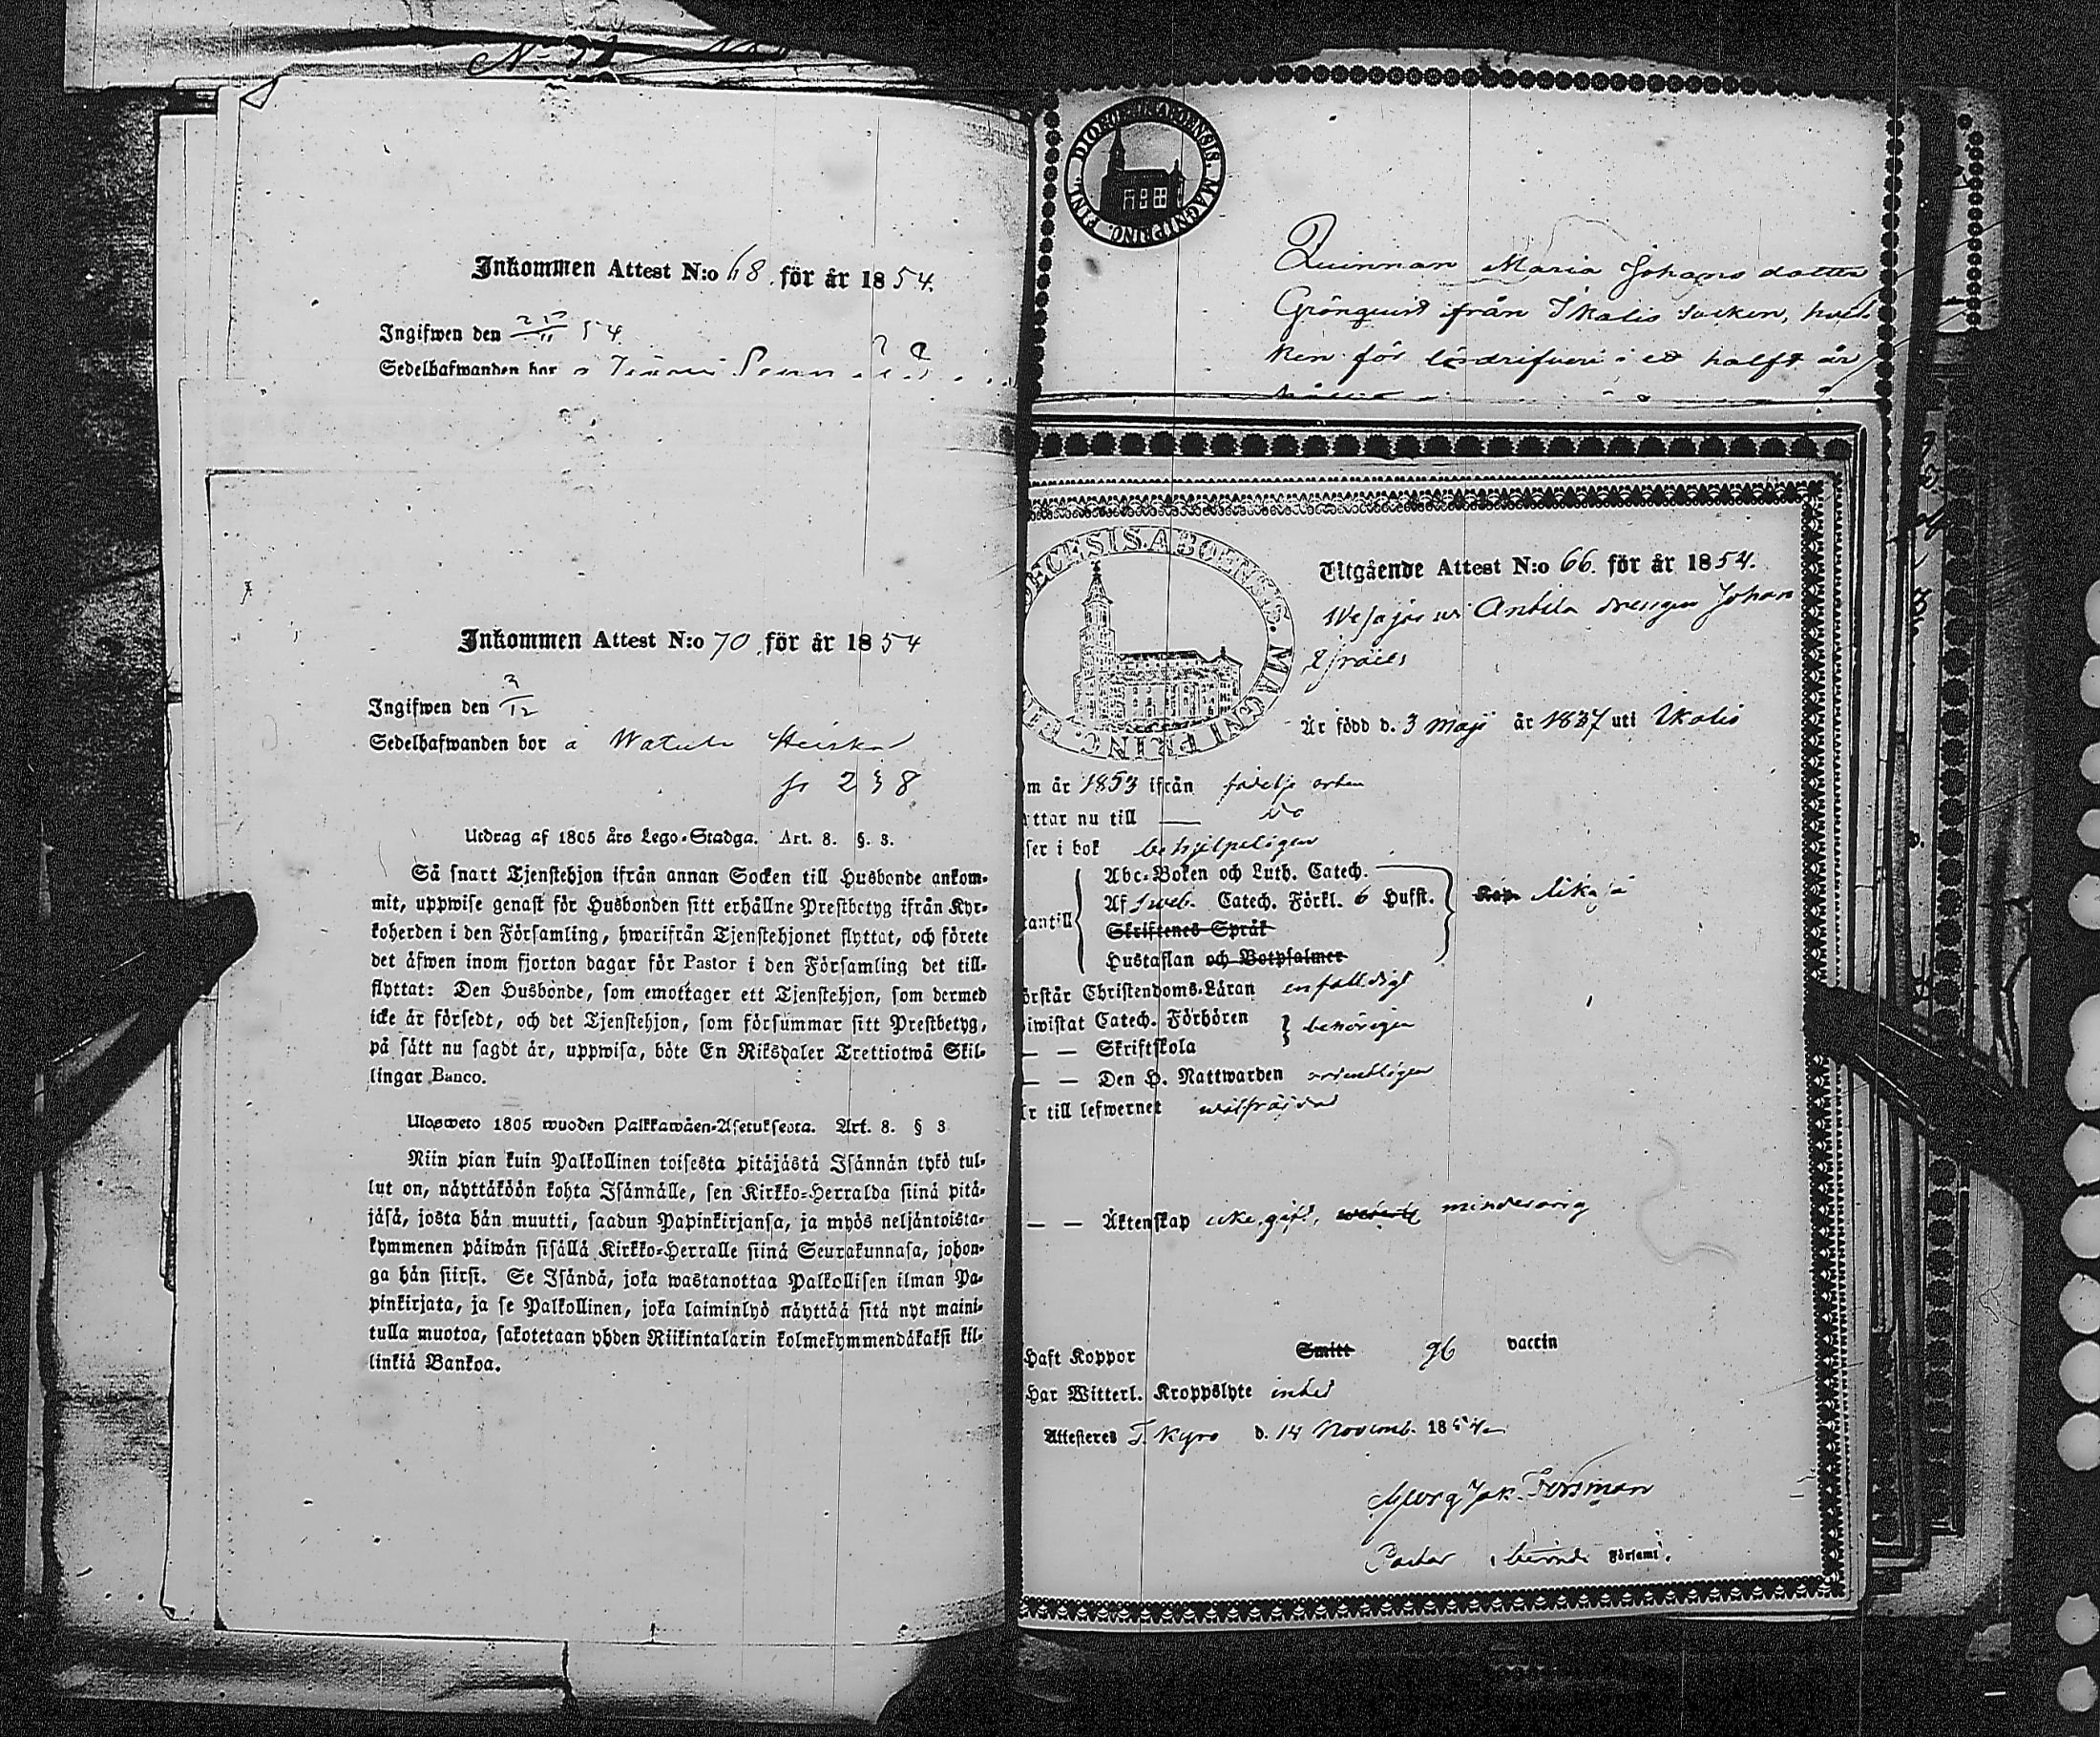 Inkommen Attest N:o 68. för år 1854.
Ingifwen den 54.
Sedelhafwanden bor
Inkommen Attest N:o 70 för år 1854
Ingifwen den 3/12
Sedelhafwanden bor å Watula Heiskas
Utdrag af 1805 års Lego-Stadga. Art. 8. §. 3.
Så snart Tjenstehjon ifrån annan Socken till Husbonde ankom-
mit, uppwise genast för Husbonden sitt erhållne Prestbetyg ifrån Kyr-
koherden i den Församling, hwarifrån Tjenstehjonet flyttat, och förete
det äfwen inom fjorton dagar för Pastor i den Församling det till-
flyttat: Den Husbonde, som emottager ett Tjenstehjon, som dermed
icke är försedt, och det Tjenstehjon, som försummar sitt Prestbetyg,
på sätt nu sagdt är, uppwisa, böte En Riksdaler Trettiotwå Skil-
lingar Banco.
Ulosweto 1805 wuoden Palkkawäen-Asetuksesta. Art. 8. § 3
Niin pian kuin Palkollinen toisesta pitäjästä Isännän tykö tul-
lut on, näyttäköön kohta Isännälle, sen Kirkko-Herralda siinä pitä-
jäsä, josta hän muutti, saadun Papinkirjansa, ja myös neljäntoista-
kymmenen päiwän sisällä Kirkko-Herralle siinä Seurakunnasa, johon-
ga hän siirsi. Se Isändä, joka wastanottaa Palkollisen ilman Pa-
pinkirjata, ja se Palkollinen, joka laiminlyö näyttää sitä nyt maini-
tulla muotoa, sakotetaan yhden Riikintalarin kolmekymmendäkaksi kil-
linkiä Bankoa.
DIOECESIS ABOENSIS. MAGNI PRINC. FINL.
Quinnan Maria Johansdotter
Grönquist från Ikalis Socken, hvil-
ken för lösdrifveri i ett halft år
DIOECESIS. ABOENSIS. MAGNI PRINC. FINL.
Utgående Attest N:o 66. för år 1854.
Wesajärwi Anttila drengen Johan
Är född d. 3 Maji år 1837 uti Ikalis
m år 1853 ifrån födelse orten
ttar nu till — do
ser i bok behjelpeligen
Abc-Boken och Luth. Catech.
Af Sweb. Catech. Förkl. 6 Hufst. Kap. likaså
tantill
Skriftenes Språk
Hustaflan och Botpsalmer
örstår Christendoms-Läran enfalldigt
iwistat Catech. Förhören behörigen
— — Skriftskola
— — Den H. Nattwarden ordentligen
är till lefwernet wälfräjdad
— — Äktenskap icke gift, minderårig
Haft Koppor Smitt gb vaccin
Har Witterl. Kroppslyte intet
Attesteres T. Kyro d. 14 Novemb. 1854
Georg Jak. Forsman
Pastor i berörde Församl.